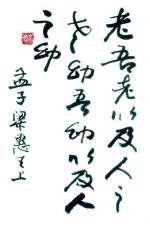 老吾老以及人之
老幼吾幼以及人
之幼
孟子梁惠王上